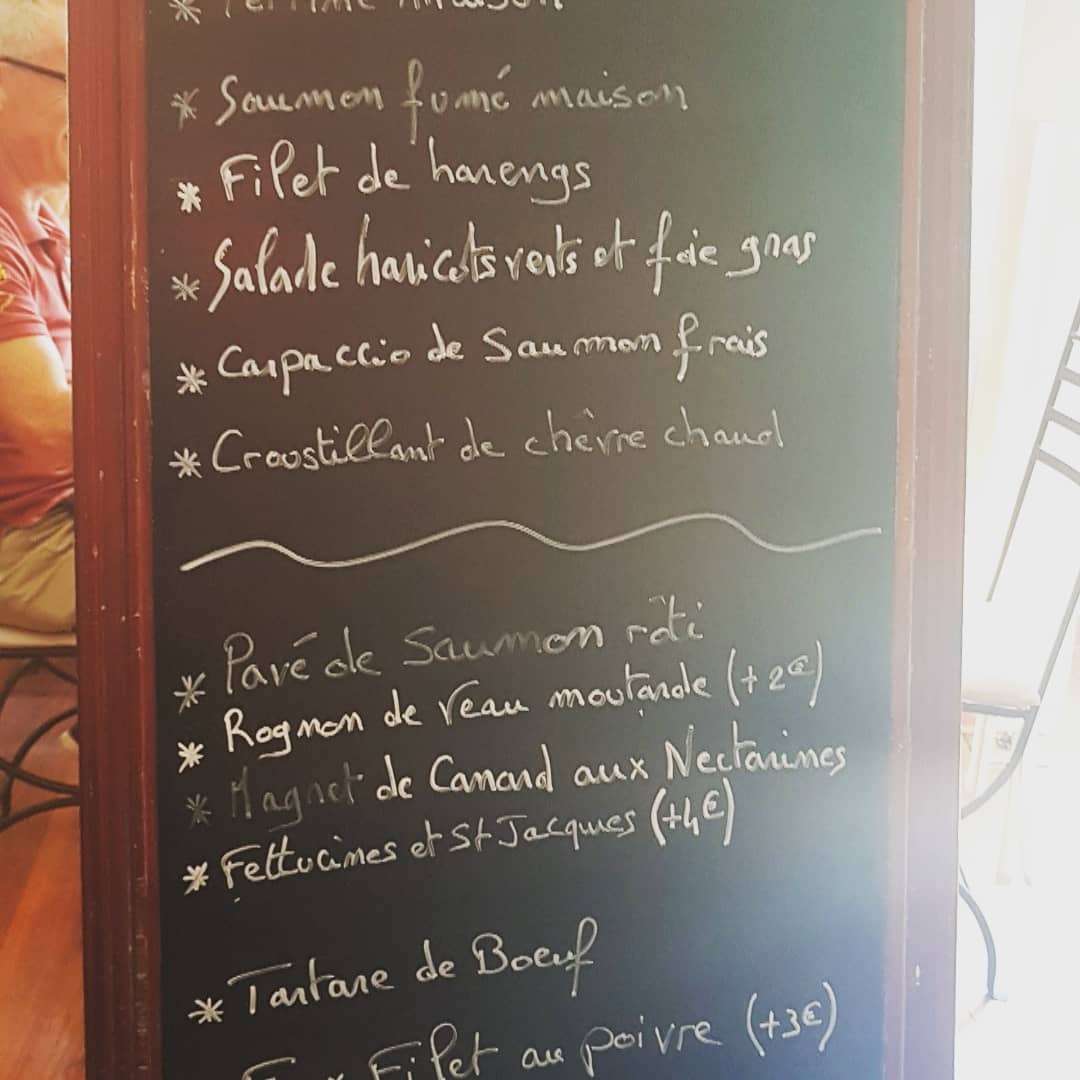 * Terrine maison
* Saumon fumé maison
* Filet de harengs
* Salade haricots verts et foie gras
* Carpaccio de Saumon frais
* Croustillant de chèvre chaud
* Pavé de Saumon rôti
* Rognon de veau moutarde (+2€)
* Magret de Canard aux Nectarines
* Fettucines et St Jacques (+4€)
* Tartare de Boeuf
Filet au poivre (+3€)